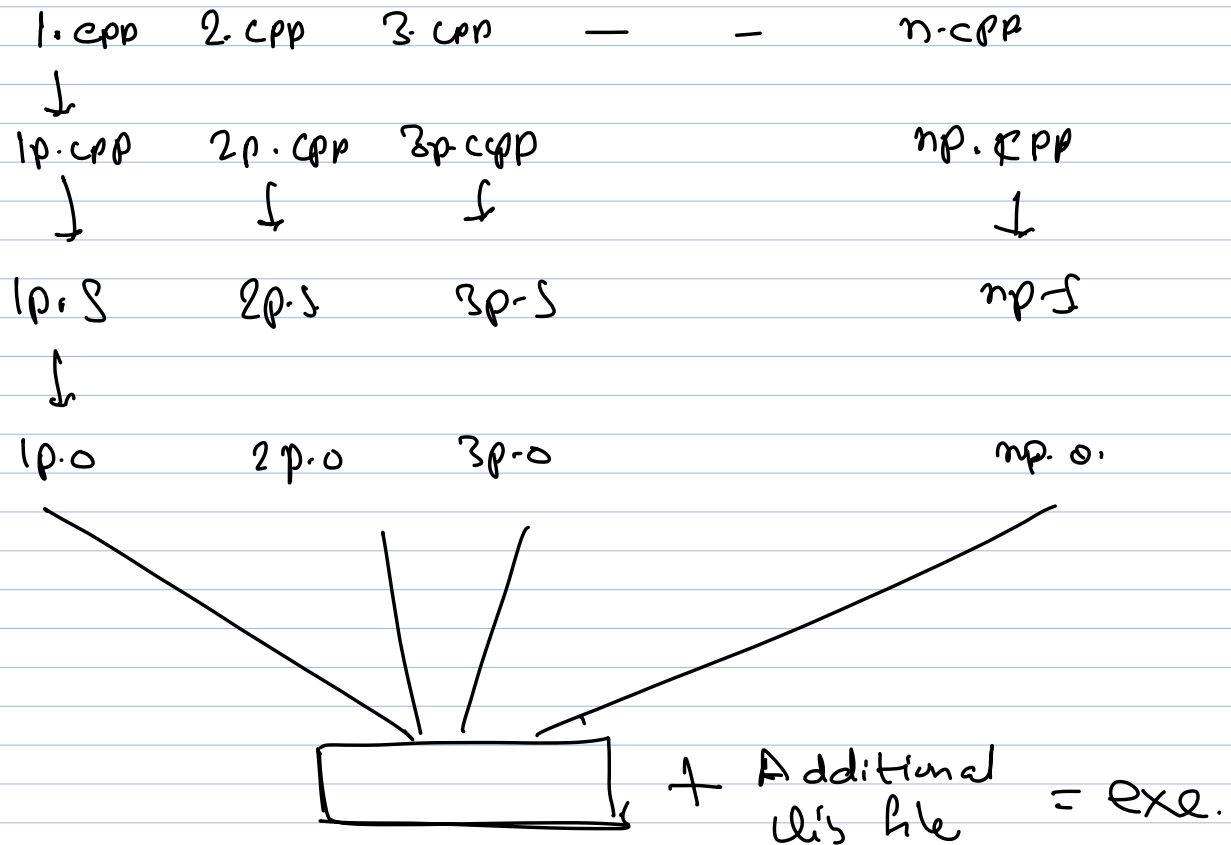 1. cpp 2. cpp 3. cpp — - n.cpp
1p.cpp 2p.cpp 3p.ccpp np.cpp
1p.s 2p.s 3p-s np-s
1p.o 2p.o 3p-o np.o.
+ Additional = exe.
lib file